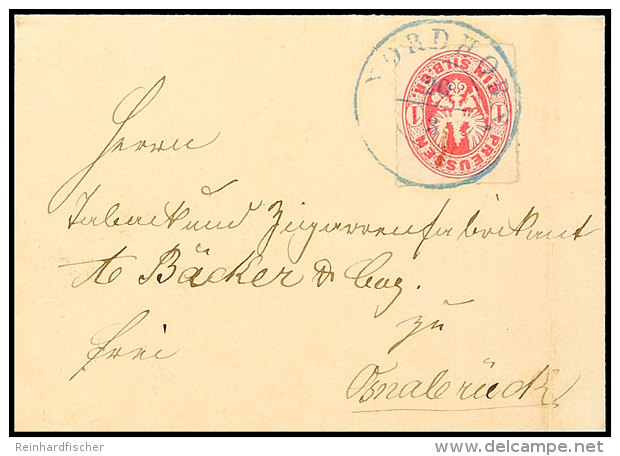 NORDHORN
PREUSSEN
EIN SILB.GR.
1 1
Herrn
Taback und Zigarrenfabrikant
Bäcker & Coy.
zu
frei
Osnabrück
Reinhardfischer
www.delcampe.net